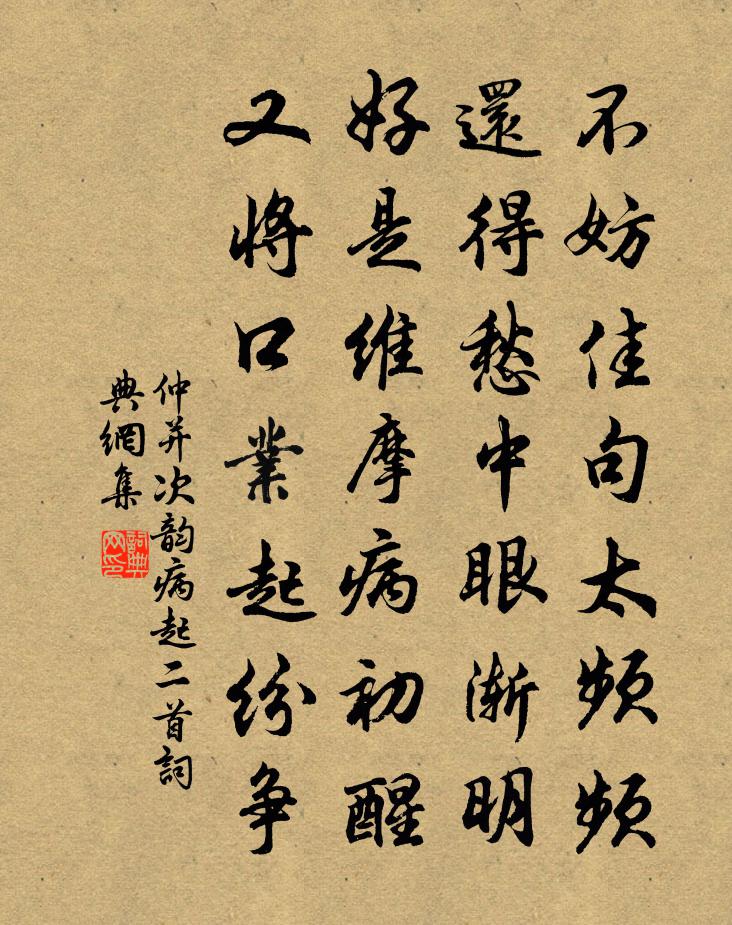 不妨佳句太頻頻
還得愁中眼漸明
好是維摩病初醒
又將口業起紛争
仲并次韵病起二首詞
典網集
詞典
网印